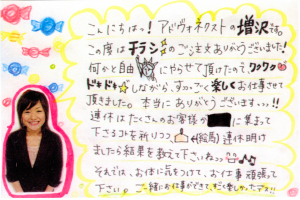 こんにちはっ！アドヴォネクストの増沢です。
この度はチラシのご注文ありがとうございました！
何かと自由にやらせて頂けたので、ワクワク
ドキドキしながら、すっごく楽しくお仕事させて
頂きました。本当にありがとうございますっっ!!
連休はたくさんのお客様が に集まって
下さるコトを祈りつつ (絵馬) 連休明け
ましたら結果を教えて下さいねっっ
それでは、お体に気をつけて、お仕事頑張って
下さい。ご一緒にお仕事ができて、すごく楽しかったデス!!